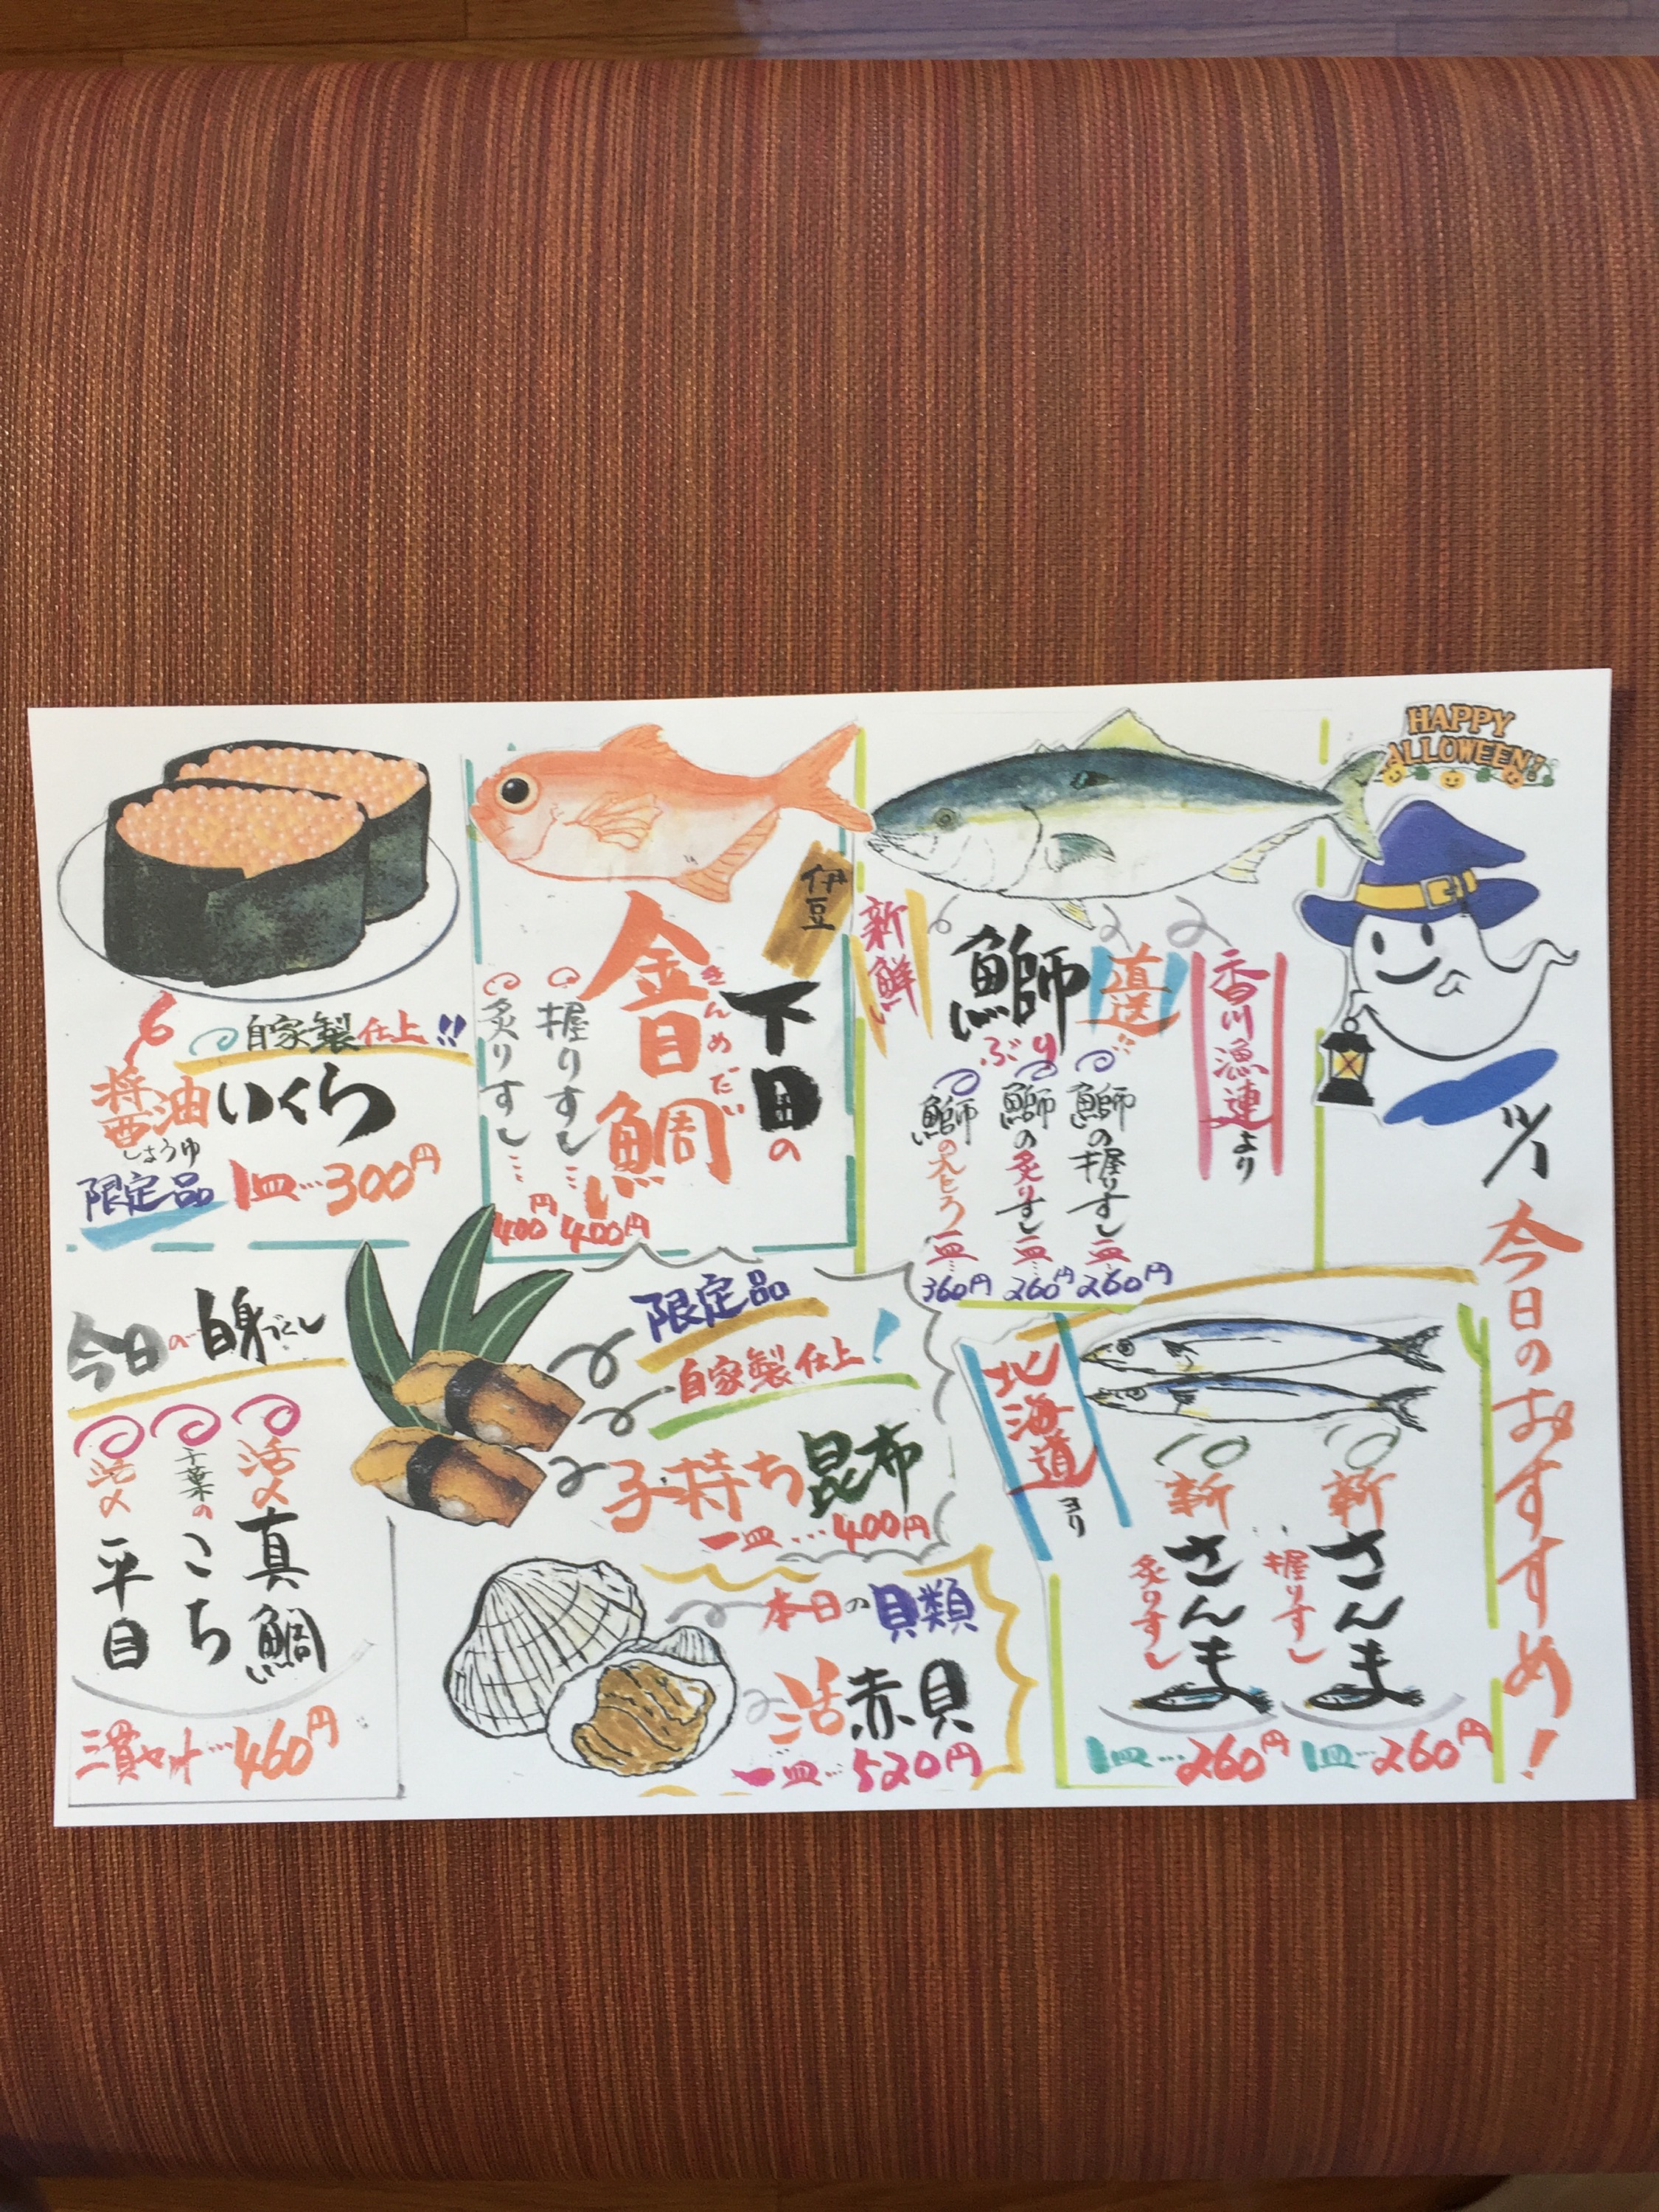 HAPPY
HALLOWEEN!
今日のおすすめ!
香川漁連より
直送!!
鰤
ぶり
新鮮
鰤の握りすし一皿…260円
鰤の炙りすし一皿…260円
一皿…360円
伊豆
下田の
金目鯛
きんめだい
握りすし…400円
炙りすし…400円
自家製仕上!!
醤油いくら
しょうゆ
限定品
1皿…300円
北海道より
新さんま
握りすし
1皿…260円
新さんま
炙りすし
1皿…260円
限定品
自家製仕上!
子持ち昆布
一皿…400円
本日の貝類
活赤貝
一皿…520円
今日の白身づくし
活〆真鯛
千葉のこち
活〆平目
三貫セット…460円